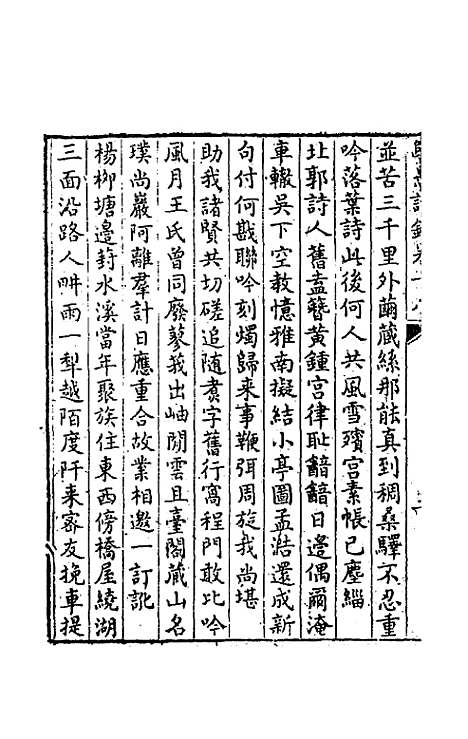 並苦三千里外繭蔵絲那能真到稠桑驛不忍重
吟落葉詩此後何人共風雪殯宮素帳已塵緇
北郭詩人舊盍簪黄鍾宫律耻韽韽日邉偶爾淹
車轍吳下空教憶雅南擬結小亭圖孟浩還成新
句付何戡聯吟刻燭歸来事鞭弭周旋我尚堪
助我諸賢共切磋追随袁字舊行窩程門敢比吟
風月王氏曾同廢蓼我出岫閒雲且臺閣蔵山名
璞尚巖阿離羣計日應重合故業相邀一訂訛
楊栁塘邉葑水溪當年聚族住東西傍橋屋繞湖
三面沿路人畊雨一犁越陌度阡来宻友挽車提